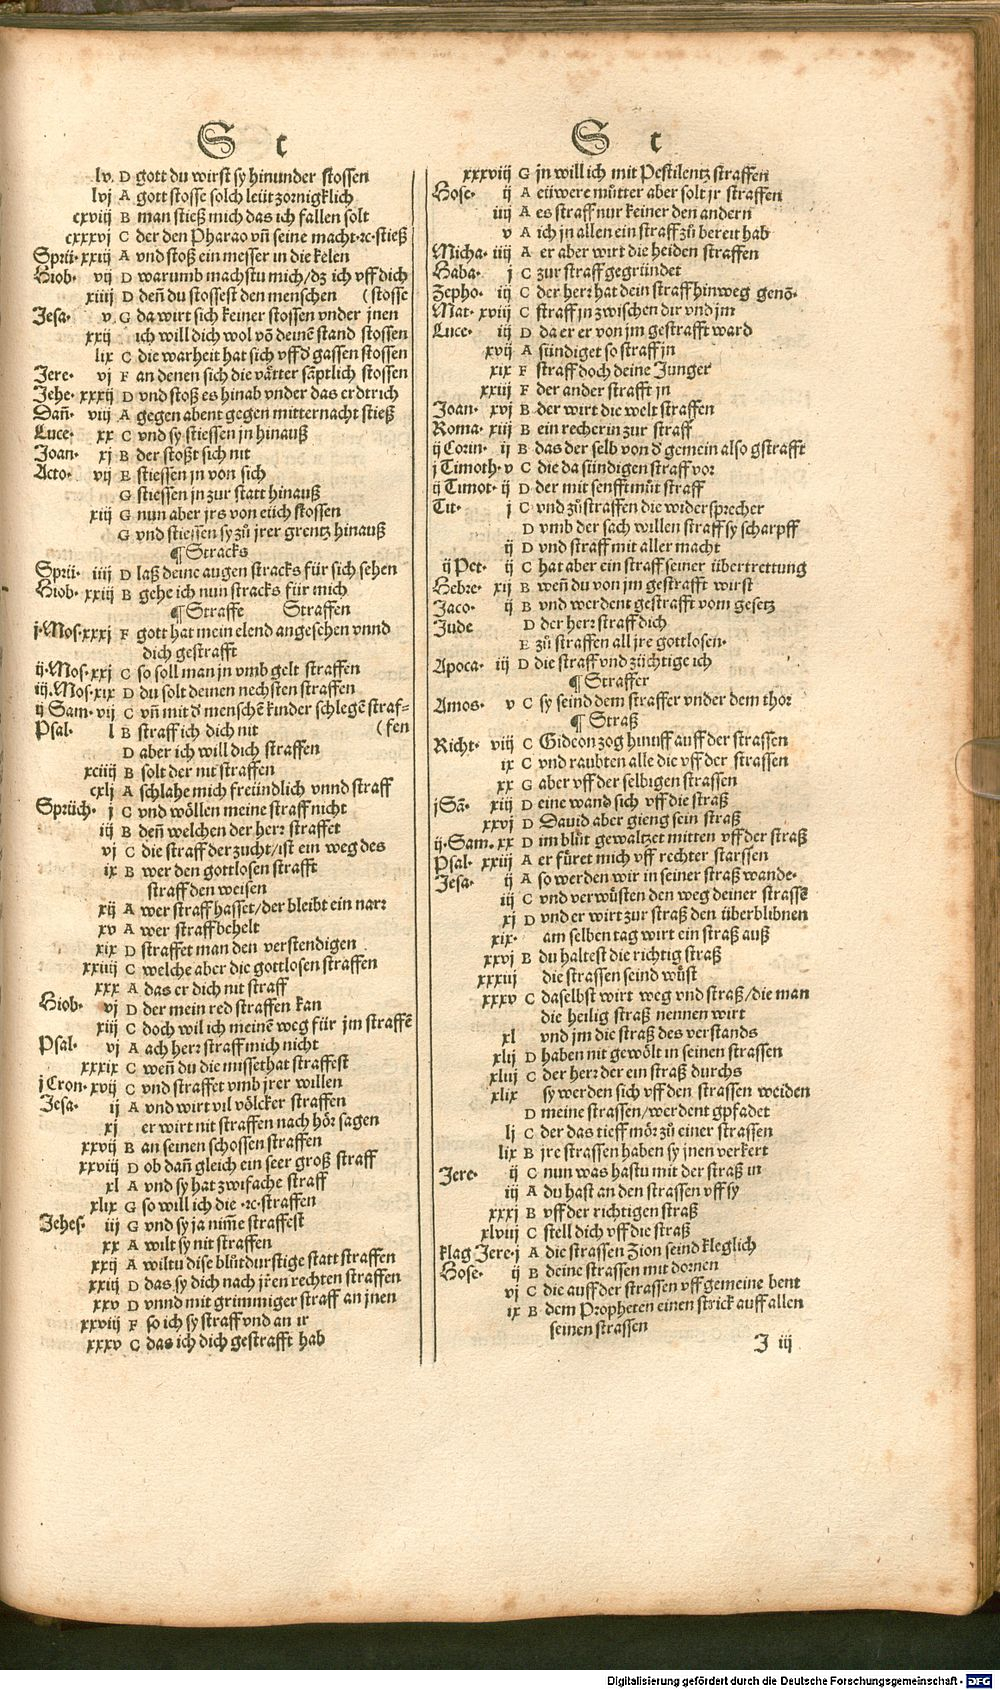 S t
lv. D gott du wirst sy hinunder stossen
lvj A gott stosse solch leüt zornigklich
cxviij B man stieß mich das ich fallen solt
cxxxvj C der den Pharao vñ seine macht·ꝛc·stieß
Sprü· xxiij A vnd stoß ein messer in die kelen
Hiob· vij D warumb machstu mich/dz ich vff dich
xiiij D deñ du stossest den menschen (stosse
Jesa· v G da wirt sich keiner stossen vnder jnen
xxij ich will dich wol võ deinẽ stand stossen
lix C die warheit hat sich vff d̕ gassen stossen
Jere· vj F an denen sich die våtter såptlich stossen
Jehe· xxxij D vnd stoß es hinab vnder das erdtrich
Dañ· viij A gegen abent gegen mitternacht stieß
Luce· xx C vnd sy stiessen jn hinauß
Joan· xj B der stoßt sich nit
Acto· vij E stiessen jn von sich
G stiessen jn zur statt hinauß
xiij G nun aber jrs von eüch stossen
G vnd stiessen sy zů jrer grentz hinauß
¶ Stracks
Sprü· iiij D laß deine augen stracks für sich sehen
Hiob· xxiij B gehe ich nun stracks für mich
¶ Straffe Straffen
j·Mos·xxxj F gott hat mein elend angesehen vnnd
dich gestrafft
ij·Mos·xxj C so soll man jn vmb gelt straffen
iij.Mos·xix D du solt deinen nechsten straffen
ij Sam· vij C vñ mit d̕ menschẽ kinder schlegẽ straf-
Psal· l B straff ich dich nit (fen
D aber ich will dich straffen
xciiij B solt der nit straffen
cxlj A schlahe mich freündlich vnnd straff
Sprüch· j C vnd wöllen meine straff nicht
iij B deñ welchen der herr straffet
vj C die straff der zucht/ist ein weg des
ix B wer den gottlosen strafft
straff den weisen
xij A wer straff hasset/der bleibt ein narr
xv A wer straff behelt
xix D straffet man den verstendigen
xxiiij C welche aber die gottlosen straffen
xxx A das er dich nit straff
Hiob· vj D der mein red straffen kan
xiij C doch wil ich meinẽ weg für jm straffẽ
Psal· vj A ach herr straff mich nicht
xxxix C weñ du die missethat straffest
j Cron· xvij C vnd straffet vmb jrer willen
Jesa· ij A vnd wirt vil völcker straffen
xj er wirt nit straffen nach hör sagen
xxvij B an seinen schossen straffen
xxviij D ob dañ gleich ein seer groß straff
xl A vnd sy hat zwifache straff
xlix G so will ich die ·ꝛc·straffen
Jehes· iij G vnd sy ja nim̃e straffest
xx A wilt sy nit straffen
xxij A wiltu dise blůtdurstige statt straffen
xxiij D das sy dich nach jrẽn rechten straffen
xxv D vnnd mit grimmiger straff an jnen
xxviij F so ich sy straff vnd an ir
xxxv C das ich dich gestrafft hab
S t
xxxviij G jn will ich mit Pestilentz straffen
Hose· ij A eüwere můtter aber solt jr straffen
iiij A es straff nur keiner den andern
v A ich jn allen ein straff zů bereit hab
Micha· iiij A er aber wirt die heiden straffen
Haba· j C zur straff gegründet
Zepho· iij C der herr hat dein straff hinweg genõ·
Mat· xviij C straff jn zwischen dir vnd jm
Luce· iij D da er er von jm gestrafft ward
xvij A sündiget so straff jn
xix F straff doch deine Junger
xxiij F der ander strafft jn
Joan· xvj B der wirt die welt straffen
Roma· xiij B ein recherin zur straff
ij Corin· ij B das der selb von d̕ gemein also gstrafft
j Timoth· v C die da sündigen straff vor
ij Timot· ij D der mit senfftmůt straff
Tit· j C vnd zů straffen die widersprecher
D vmb der sach willen straff sy scharpff
ij D vnd straff mit aller macht
ij Pet· ij C hat aber ein straff seiner übertrettung
Hebre· xij B weñ du von jm gestrafft wirst
Jaco· ij B vnd werdent gestrafft vom gesetz
Jude D der herr straff dich
E zů straffen all jre gottlosen·
Apoca· iij D die straff vnd züchtige ich
¶ Straffer
Amos· v C sy seind dem straffer vnder dem thor
¶ Straß
Richt· viij C Gideon zog hinuff auff der strassen
ix C vnd raubten alle die vff der strassen
xx G aber vff der selbigen strassen
j Sã· xiij D eine wand sich vff die straß
xxvj D Dauid aber gieng sein straß
ij·Sam. xx D im blůt gewaltzet mitten vff der straß
Psal· xxiij A er füret mich vff rechter starssen
Jesa· ij A so werden wir in seiner straß wande·
iij C vnd verwüsten den weg deiner strassẽ
xj D vnd er wirt zur straß den überblibnen
xix· am selben tag wirt ein straß auß
xxvj B du haltest die richtig straß
xxxiij die strassen seind wůst
xxxv C daselbst wirt weg vnd straß/die man
die heilig straß nennen wirt
xl vnd jm die straß des verstands
xlij D haben nit gewölt in seinen strassen
xliij C der herr der ein straß durchs
xlix sy werden sich vff den strassen weiden
D meine strassen/werdent gpfadet
lj C der das tieff mör zů einer strassen
lix B jre strassen haben sy jnen verkert
Jere· ij C nun was hastu mit der straß in
iij A du hast an den strassen vff sy
xxxj B vff der richtigen straß
xlviij C stell dich vff die straß
klag Jere· j A die strassen Zion seind kleglich
Hose· ij B deine strassen mit dornen
vj C die auff der strassen vff gemeine bent
ix B dem Propheten einen strick auff allen
seinen strassen
J iij
Digitalisierung gefördert durch die Deutsche Forschungsgemeinschaft - DFG